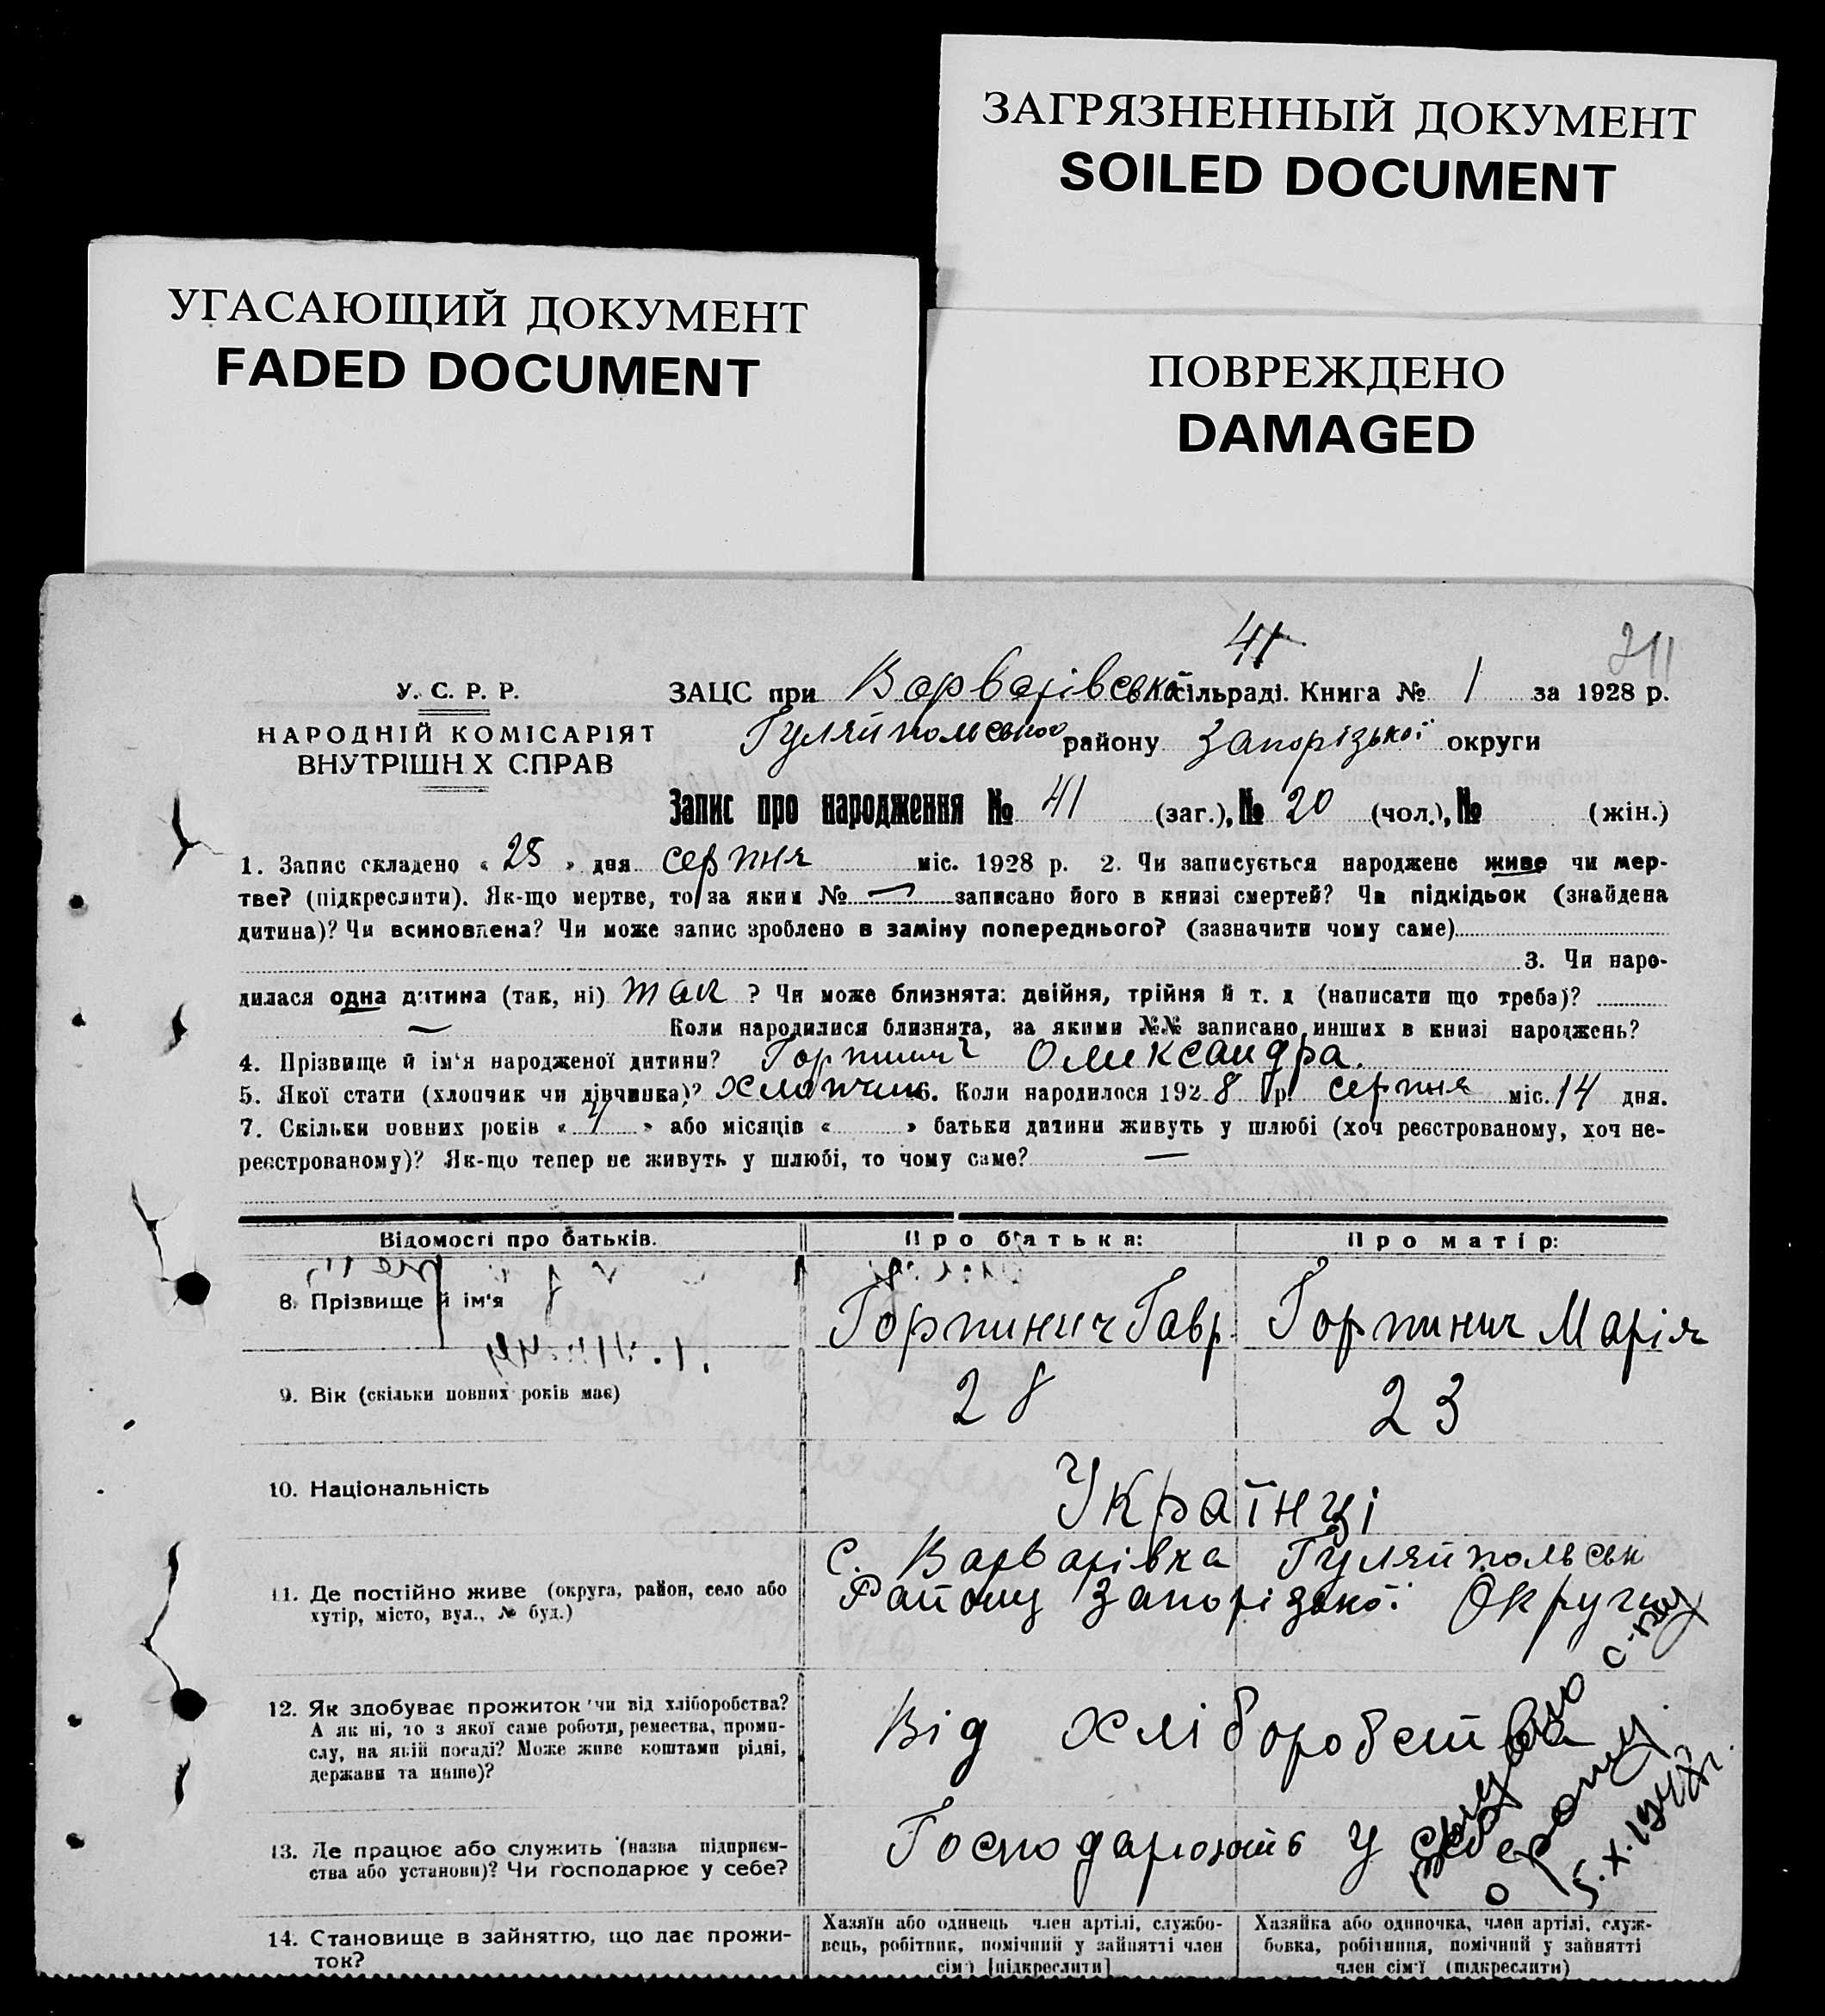 ЗАГРЯЗНЕННЫЙ ДОКУМЕНТ
SOILED DOCUMENT
УГАСАЮЩИЙ ДОКУМЕНТ
FADED DOCUMENT
ПОВРЕЖДЕНО
DAMAGED
41
211
У. С. Р. Р.
НАРОДНІЙ КОМІСАРІЯТ
ВНУТРІШН Х СПРАВ
ЗАЦС при Варварівській сільраді. Книга № 1 за 1928 р.
Гуляйпольського району Запорізької округи
Запис про народження № 41 (заг.), № 20 (чол.), № (жін.)
1. Запис складено « 25 » дня серпня міс. 1928 р. 2. Чи записується народжене живе чи мер-
тве? (підкреслити). Як-що мертве, то за яким № — записано його в книзі смертей? Чи підкідьок (знайдена
дитина)? Чи всиновлена? Чи може запис зроблено в заміну попереднього? (зазначити чому саме)
3. Чи наро-
дилася одна дитина (так, ні) так ? Чи може близнята: двійня, трійня й т. д (написати що треба)?
— Коли народилися близнята, за якими №№ записано инших в книзі народжень?
4. Прізвище й ім'я народженої дитини? Горпинич Олександра.
5. Якої стати (хлопчик чи дівчинка)? хлопчик 6. Коли народилося 1928 р. серпня міс. 14 дня.
7. Скільки повних років « 4 » або місяців « » батьки дитини живуть у шлюбі (хоч реєстрованому, хоч не-
реєстрованому)? Як-що тепер не живуть у шлюбі, то чому саме? —
Відомості про батьків.
Про батька:
Про матір:
8. Прізвище й ім'я
Горпинич Гавр.
Горпинич Марія
9. Вік (скільки повних років має)
28
23
10. Національність
Українці
11. Де постійно живе (округа, район, село або
хутір, місто, вул., № буд.)
с. Варварівка Гуляйпольськ
Району Запорізької Округи
12. Як здобуває прожиток чи від хліборобства?
А як ні, то з якої саме роботи, ремества, проми-
слу, на якій посаді? Може живе коштами рідні,
держави та инше)?
Від хліборобства
13. Де працює або служить (назва підприєм-
ства або установи)? Чи господарює у себе?
Господарюють у себе
5.X.1947г.
14. Становище в зайняттю, що дає прожи-
ток?
Хазяїн або одинець член артілі, службо-
вець, робітник, помічний у зайнятті член
сім'ї [підкреслити]
Хазяйка або одиночка, член артілі, служ-
бовка, робітниця, помічний у зайнятті
член сім'ї (підкреслити)